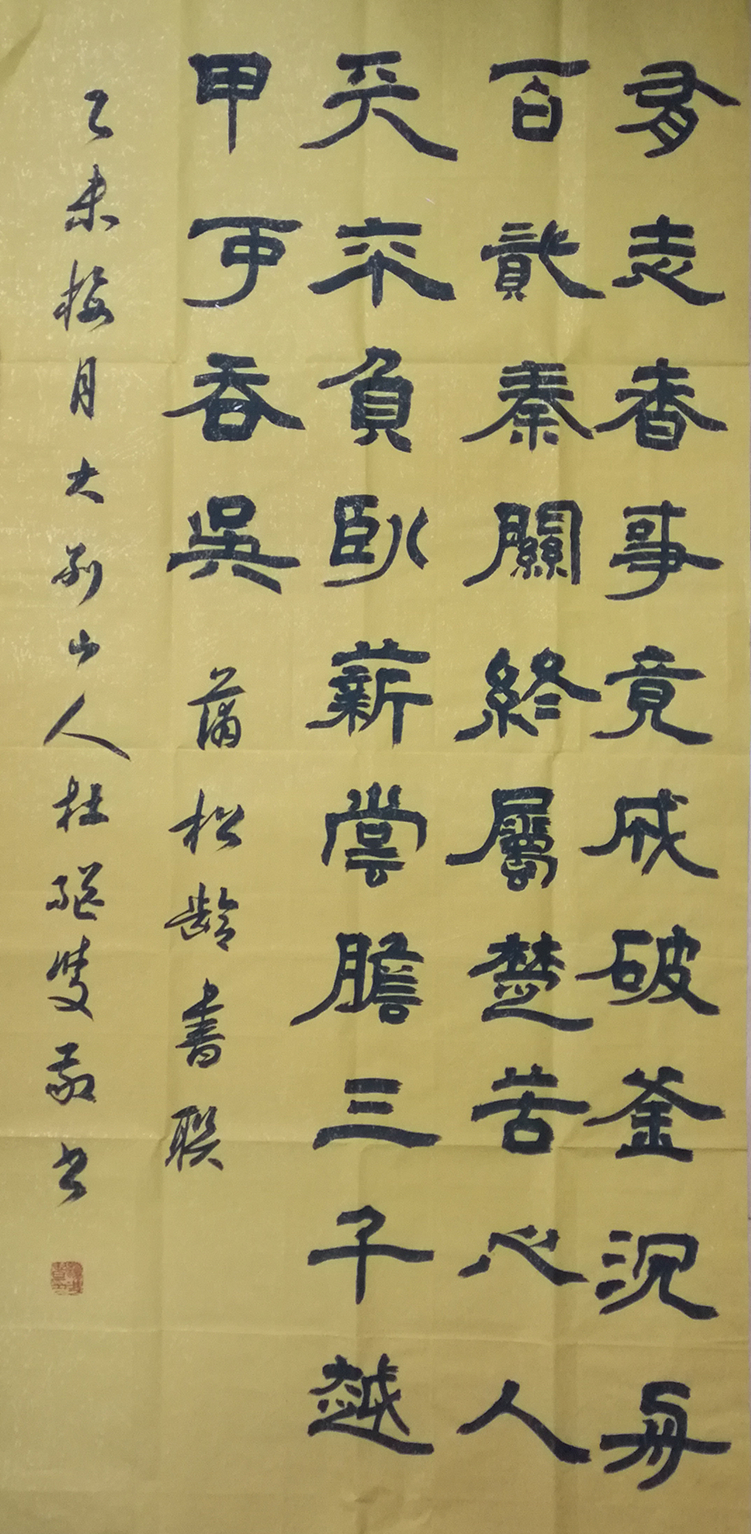 有志者事竟成破釜沉舟
百貳秦關終屬楚苦心人
天不負臥薪嘗膽三千越
甲可吞吳 蒲松齡書聯
乙未梅月大别山人杜叟敬书